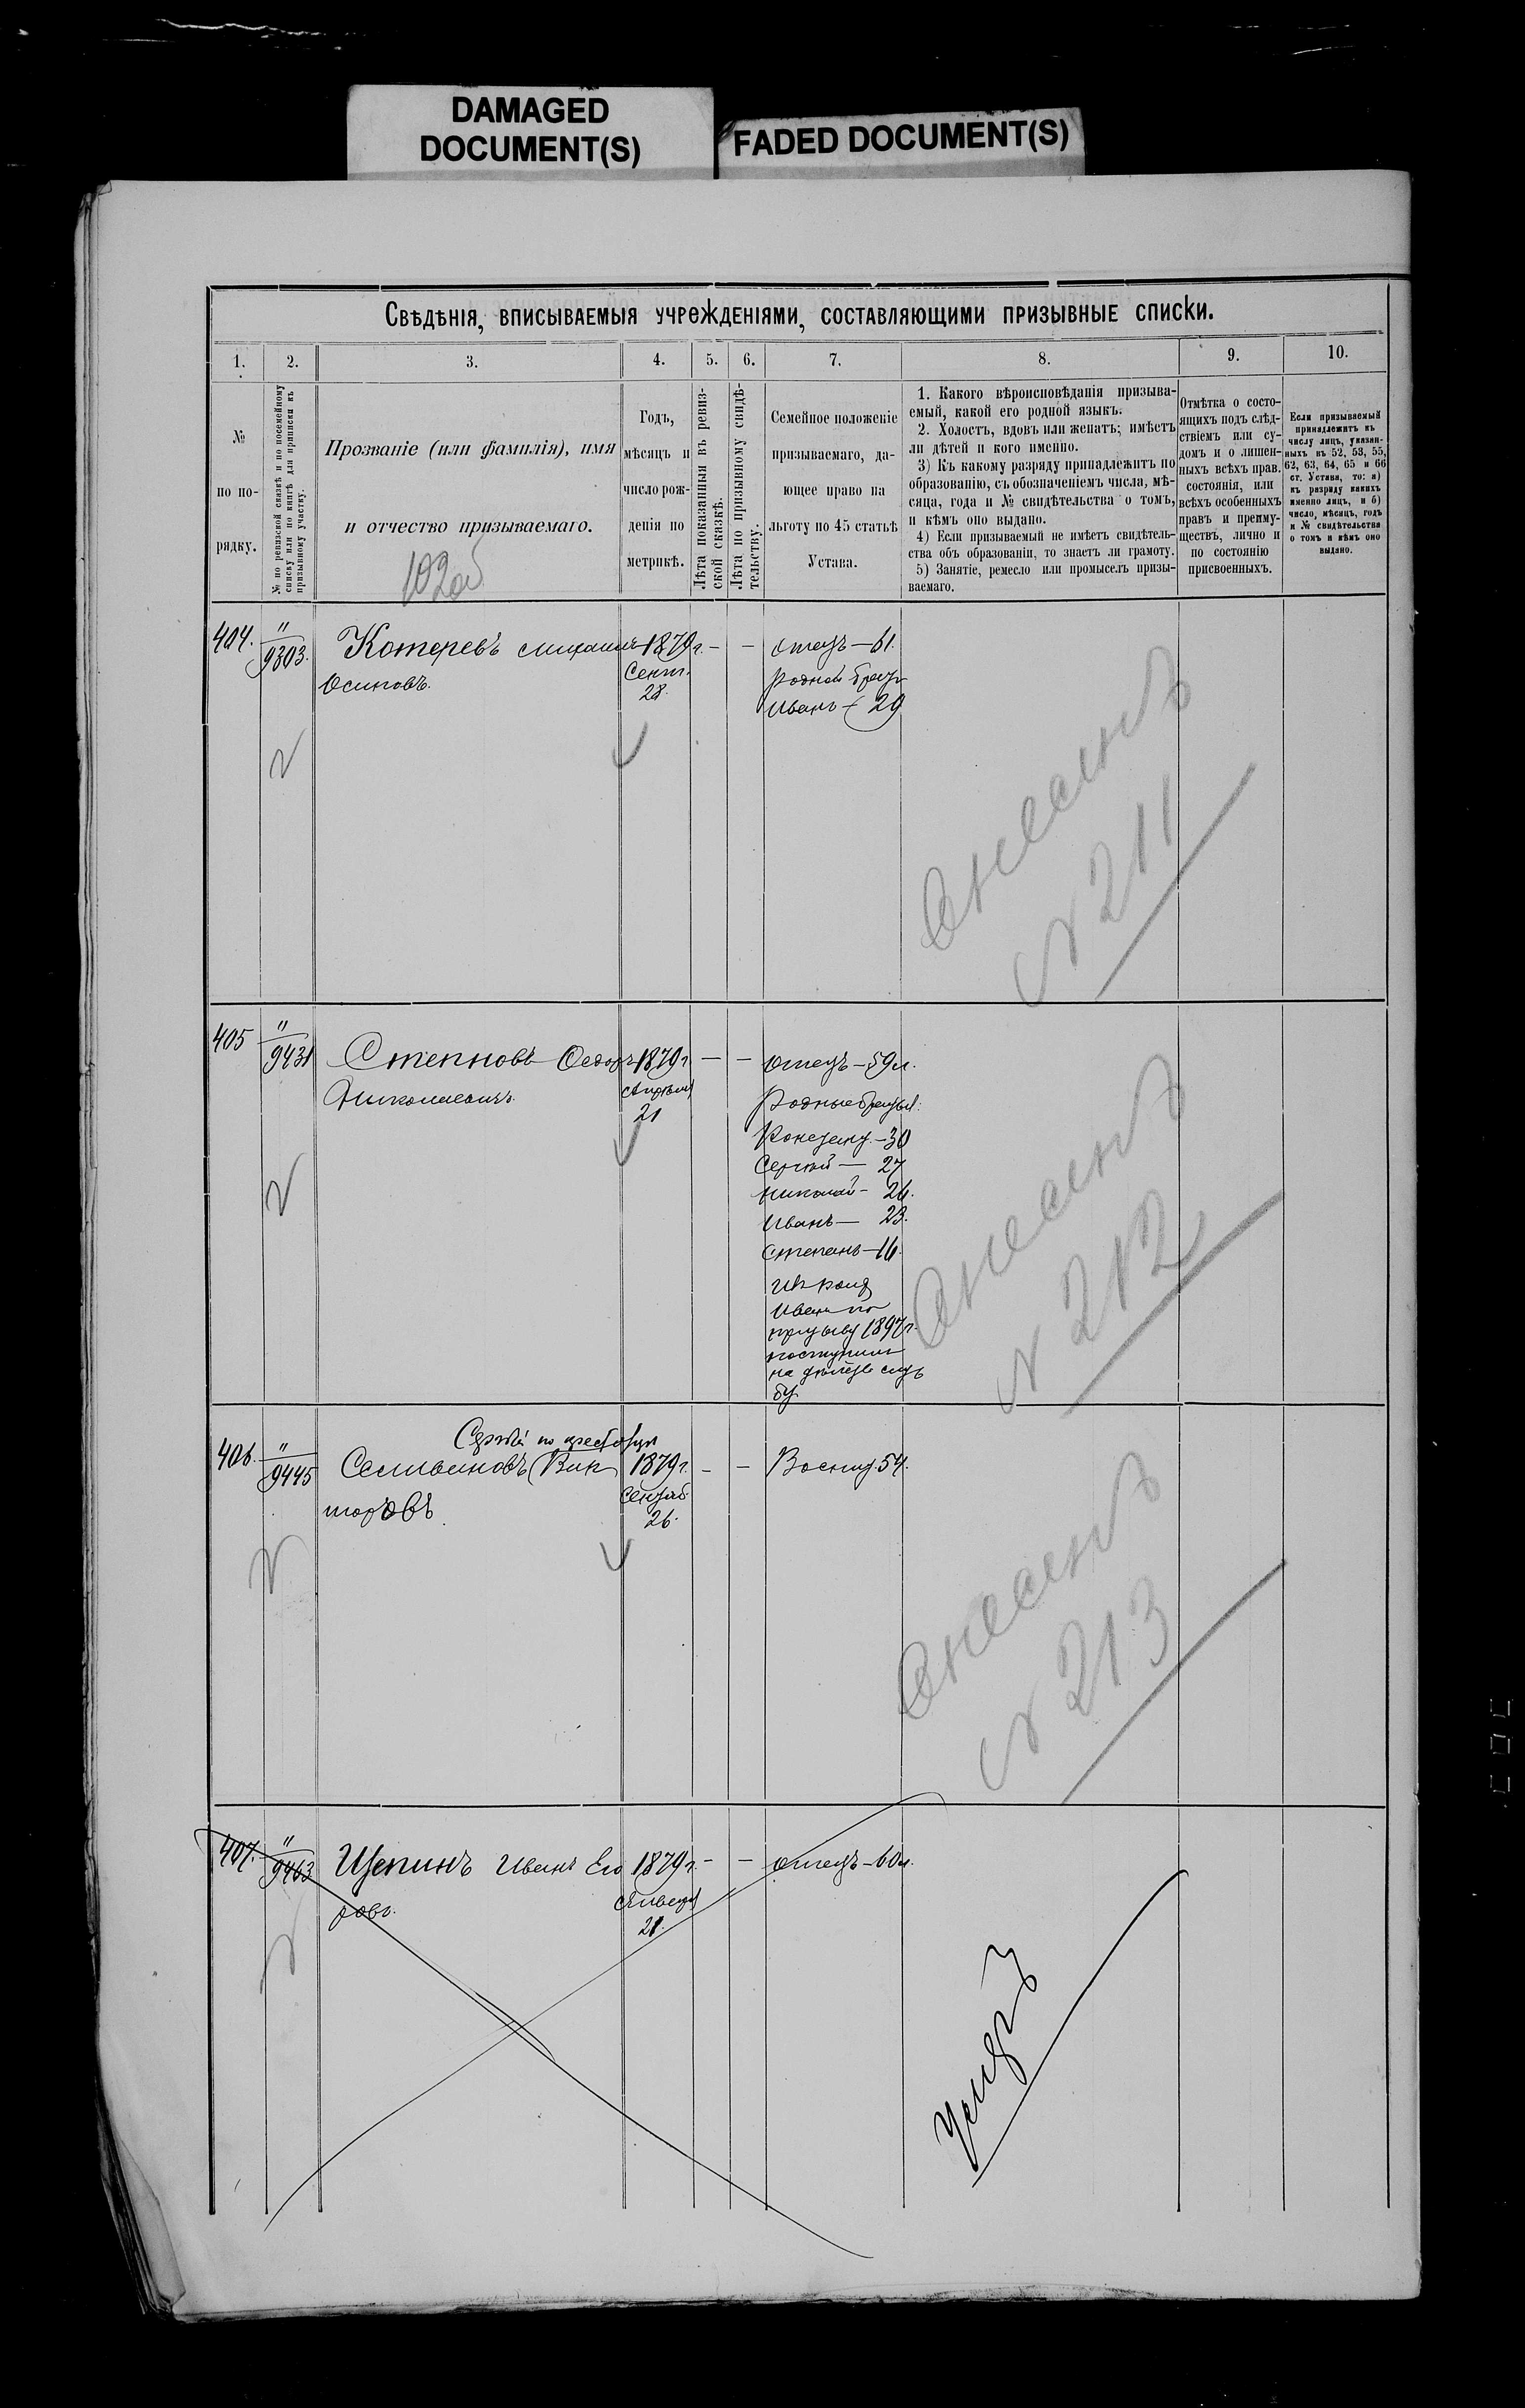 DAMAGED
DOCUMENT(S)
FADED DOCUMENT(S)
Свѣдѣнія, вписываемыя учрежденіями, составляющими призывные списки.
1. 2. 3. 4. 5. 6. 7. 8. 9. 10.
№
по по-
рядку.
№ по ревизской сказкѣ и по посемейному
списку или по книгѣ для приписки къ
призывному участку.
Прозваніе (или фамилія), имя
и отчество призываемаго.
Годъ,
мѣсяцъ и
число рож-
денія по
метрикѣ.
Лѣта показанныя въ ревиз-
ской сказкѣ.
Лѣта по призывному свидѣ-
тельству.
Семейное положеніе
призываемаго, да-
ющее право на
льготу по 45 статьѣ
Устава.
1. Какого вѣроисповѣданія призыва-
емый, какой его родной языкъ.
2. Холостъ, вдовъ или женатъ; имѣетъ
ли дѣтей и кого именно.
3) Къ какому разряду принадлежитъ по
образованію, съ обозначеніемъ числа, мѣ-
сяца, года и № свидѣтельства о томъ,
и кѣмъ оно выдано.
4) Если призываемый не имѣетъ свидѣтель-
ства объ образованіи, то знаетъ ли грамоту.
5) Занятіе, ремесло или промыселъ призы-
ваемаго.
Отмѣтка о состо-
ящихъ подъ слѣд-
ствіемъ или су-
домъ и о лишен-
ныхъ всѣхъ прав.
состоянія, или
всѣхъ особенныхъ
правъ и преиму-
ществъ, лично и
по состоянію
присвоенныхъ.
Если призываемый
принадлежитъ къ
числу лицъ, указан-
ныхъ въ 52, 53, 55,
62, 63, 64, 65 и 66
ст. Устава, то: а)
къ разряду какихъ
именно лицъ, и б)
число, мѣсяцъ, годъ
и № свидѣтельства
о томъ и кѣмъ оно
выдано.
102об
404. " 9303. Котеревъ Михаилъ 1879г. - - отецъ - 61.
Осиповъ. Сент. родной братъ
28. Иванъ - 29
Внесенъ
№ 211
405 " 9431 Степновъ Федоръ 1879г - - отецъ - 59л.
Николаевичъ. Апрѣля родные братья:
21 Конст. - 30
Сергѣй - 27
Николай - 26.
Иванъ - 23.
Степанъ - 16.
Иванъ по
призыву 1897г.
поступилъ
на дѣйств служ
бу
Внесенъ
№ 212
Сергѣй по крест. отцу
406. " 9445 Селивановъ (Вик 1879г. - - Воспит. 54.
торовъ Сентяб.
26.
Внесенъ
№ 213
407. " 9463 Щепинъ Иванъ Его 1879г. - - отецъ - 60л.
ровъ. Января
21.
Умеръ